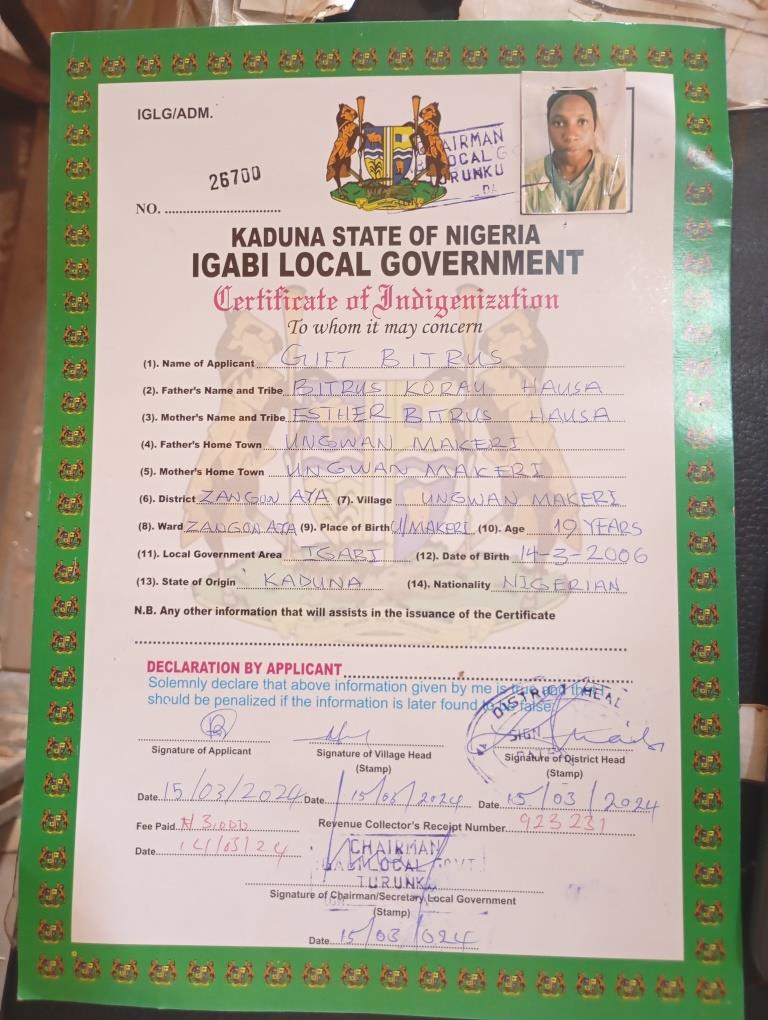 IGLG/ADM.
26700
NO.
AIRMAN
OCAL G
TURUNKU
KADUNA STATE OF NIGERIA
IGABI LOCAL GOVERNMENT
Certificate of Indigenization
To whom it may concern
(1). Name of Applicant GIFT BITRUS
(2). Father's Name and Tribe BITRUS KORAU HAUSA
(3). Mother's Name and Tribe ESTHER BITRUS HAUSA
(4). Father's Home Town UNGWAN MAKERI
(5). Mother's Home Town UNGWAN MAKERI
(6). District ZANGON AYA (7). Village UNGWAN MAKERI
(8). Ward ZANGON AYA (9). Place of Birth U/MAKERI (10). Age 19 YEARS
(11). Local Government Area IGABI (12). Date of Birth 14-3-2006
(13). State of Origin KADUNA (14). Nationality NIGERIAN
N.B. Any other information that will assists in the issuance of the Certificate
DECLARATION BY APPLICANT
Solemnly declare that above information given by me is true and that I
should be penalized if the information is later found to be false
DISTRICT HEAD
SIGN
Signature of Applicant Signature of Village Head Signature of District Head
(Stamp) (Stamp)
Date 15/03/2024 Date 15/03/2024 Date 15/03/2024
Fee Paid Revenue Collector's Receipt Number 923231
Date 14/03/24
CHAIRMAN
LOCAL GOVT.
TURUNKU
Signature of Chairman/Secretary Local Government
(Stamp)
Date 15/03/2024